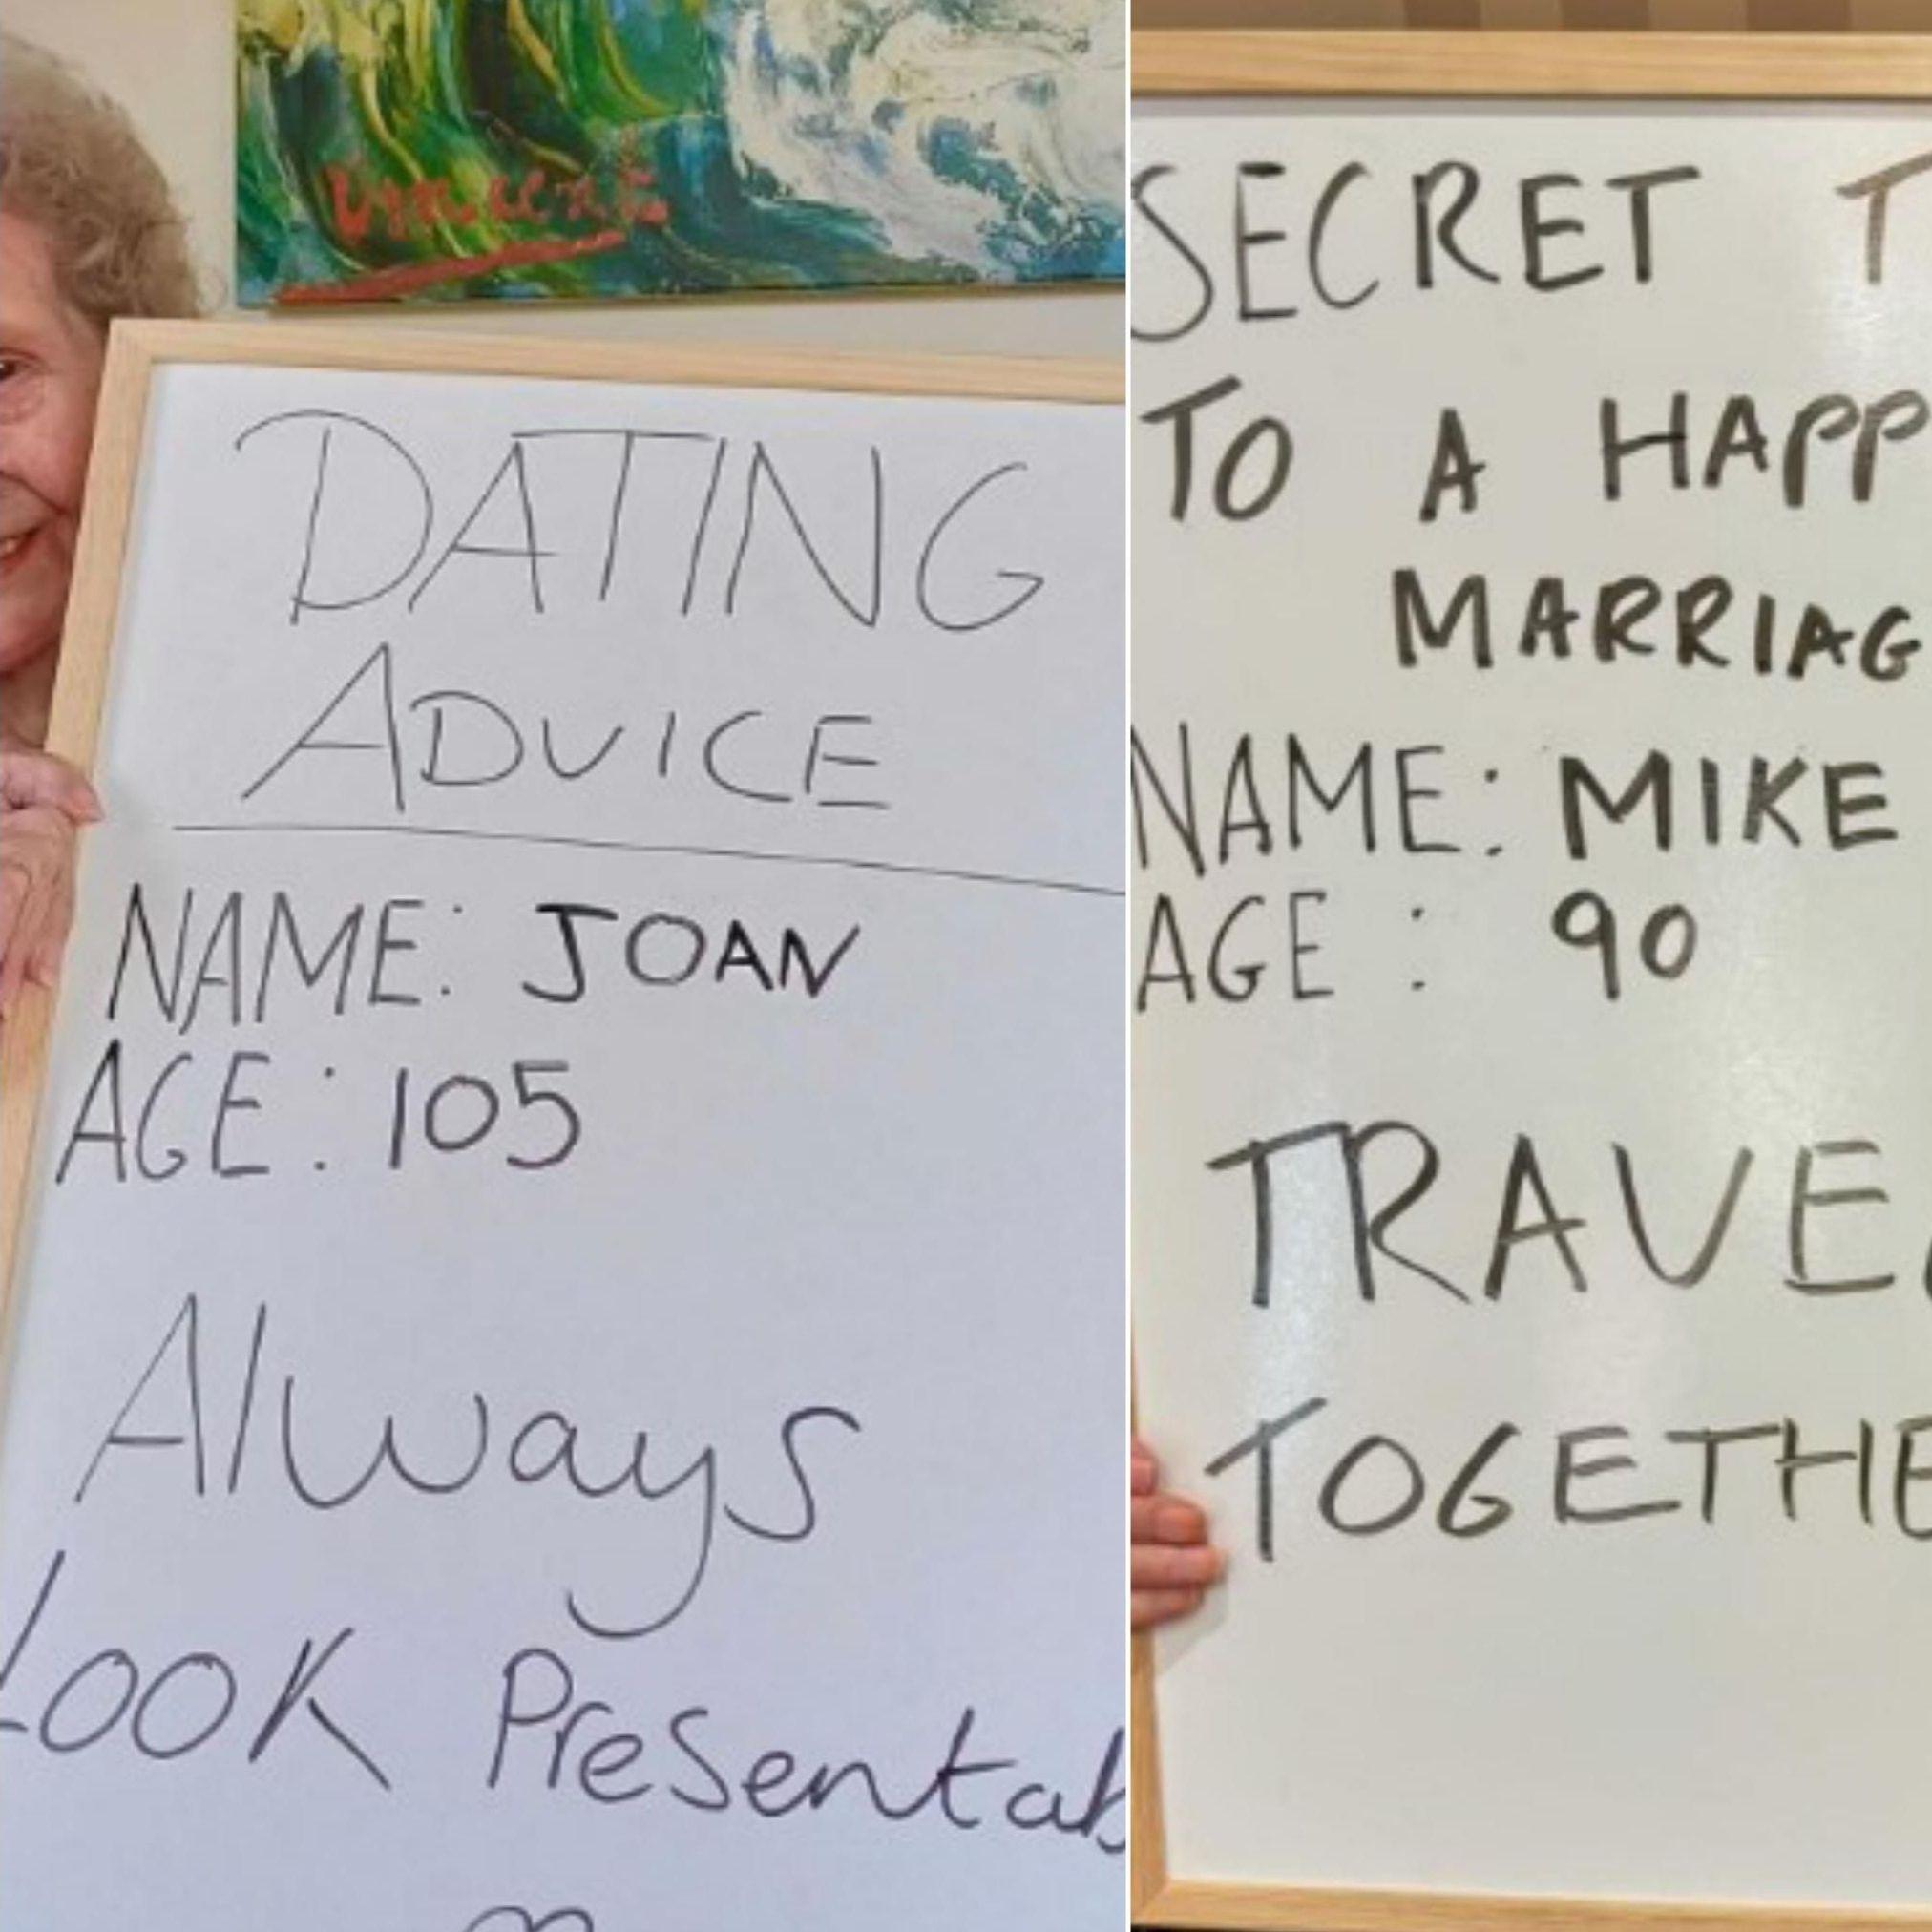 Vincent
DATING
ADVICE
NAME: JOAN
AGE: 105
Always
Look Presentab
SECRET T
TO A HAPP
MARRIAG
NAME: MIKE
AGE: 90
TRAVE
TOGETHE